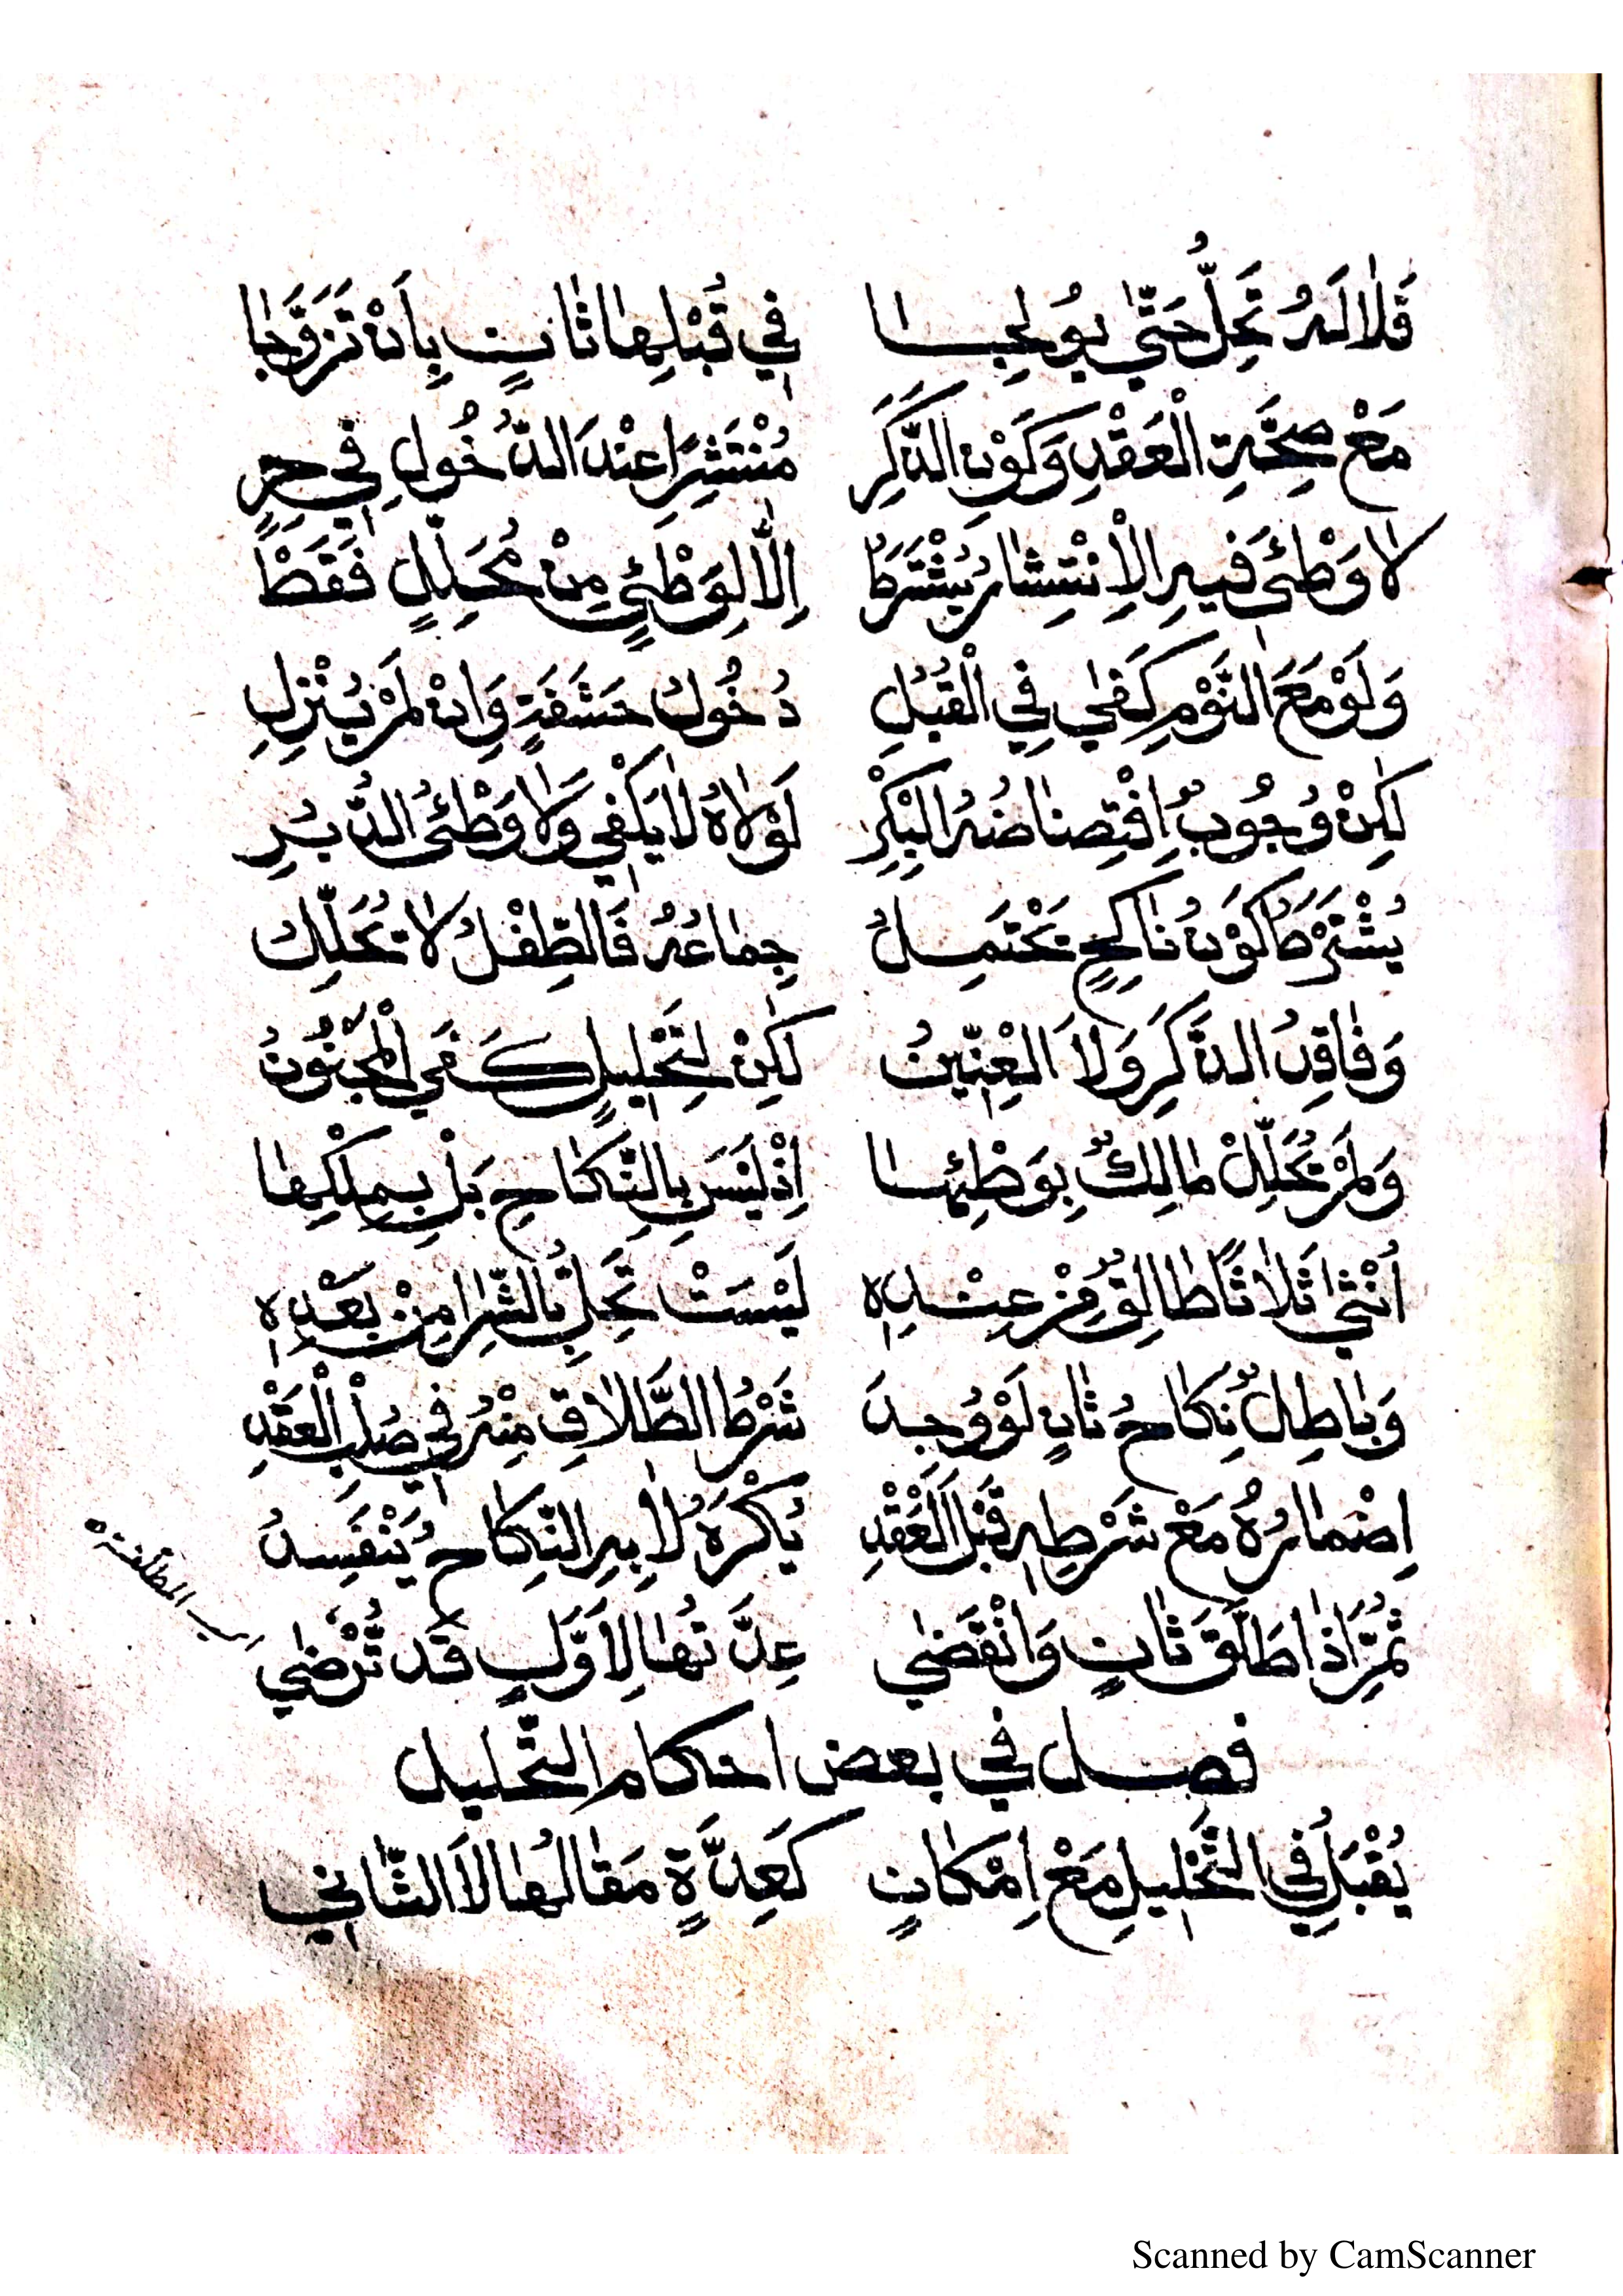 فَلَا لَهُ تَحِلُّ حَتّٰى يُولِجَا فِي قُبْلِهَا ثَانٍ بِاَنْ تَزَوَّجَا
مَعْ صِحَّةِ الْعَقْدِ وَكَوْنِ الذَّكَرِ مُنْتَشِرًا عِنْدَ الدُّخُولِ فِي حِرٍ
لَا وَطْئَ فِيهِ الْاِنْتِشَارُ يُشْتَرَطُ اِلَّا لِوَطْئٍ مِنْ مُحَلِّلٍ فَقَطْ
وَلَوْ مَعَ النَّوْمِ كَفٰى فِي الْقُبُلِ دُخُولُ حَشَفَةٍ وَاِنْ لَمْ يُنْزِلِ
لٰكِنْ وُجُوبٌ اِفْتِضَاضُهُ الْبِكْرِ لَوْلَاهُ لَا يَكْفِي وَلَا وَطْئُ الدُّبُرِ
يُشْتَرَطُ كَوْنُ نَاكِحٍ تَحْتَمِلُ جِمَاعَهُ فَالطِّفْلُ لَا تُحَلِّلُ
وَفَاقِدُ الذَّكَرِ وَلَا الْعِنِّينُ لٰكِنْ لِتَحْلِيلٍ كَفَى الْمَجْنُونُ
وَلَمْ تُحَلِّلْ مَالِكٌ بِوَطْئِهَا اِذْ لَيْسَ بِالنِّكَاحِ بَلْ بِمِلْكِهَا
اُنْثٰى ثَلَاثًا طَالِقٌ مِنْ عِنْدِهِ لَيْسَتْ تَحِلُّ بِالشِّرَا مِنْ بَعْدِهِ
وَبَاطِلٌ نِكَاحُ ثَانٍ لَوْ وُجِدَ شَرْطُ الطَّلَاقِ مِنْهُ فِي صُلْبِ الْعَقْدِ
اِضْمَارُهُ مَعْ شَرْطِهِ قَبْلَ الْعَقْدِ يُكْرَهُ لَا بِهِ النِّكَاحُ يَنْفَسِدُ
ثُمَّ اِذَا طَلَّقَ ثَانٍ وَانْقَضٰى عِدَّتُهَا لِاَوَّلٍ قَدْ تُرْضٰى
فصل في بعض احكام التحليل
يُقْبَلُ فِي التَّحْلِيلِ مَعْ اِمْكَانٍ كَعِدَّةٍ مَقَالُهَا لَا الثَّانِي
Scanned by CamScanner